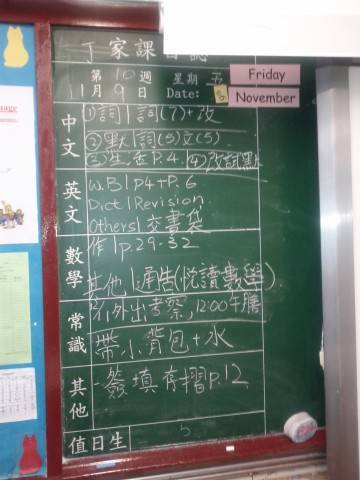 丁家課日誌
第10週 星期 五 Friday
11月9日 Date: November
中文 ①詞|詞(7)+改
②默|詞(5)文(5)
③生.查P.4. ④改詞默
英文 W.B|P4+P.6
Dict|Revision
Others|交書袋
數學 作|p.29-32
其他|通告(悅讀數學)
常識 外出考察,12:00午膳
帶小背包+水
其他 簽填存摺p.12
值日生 5